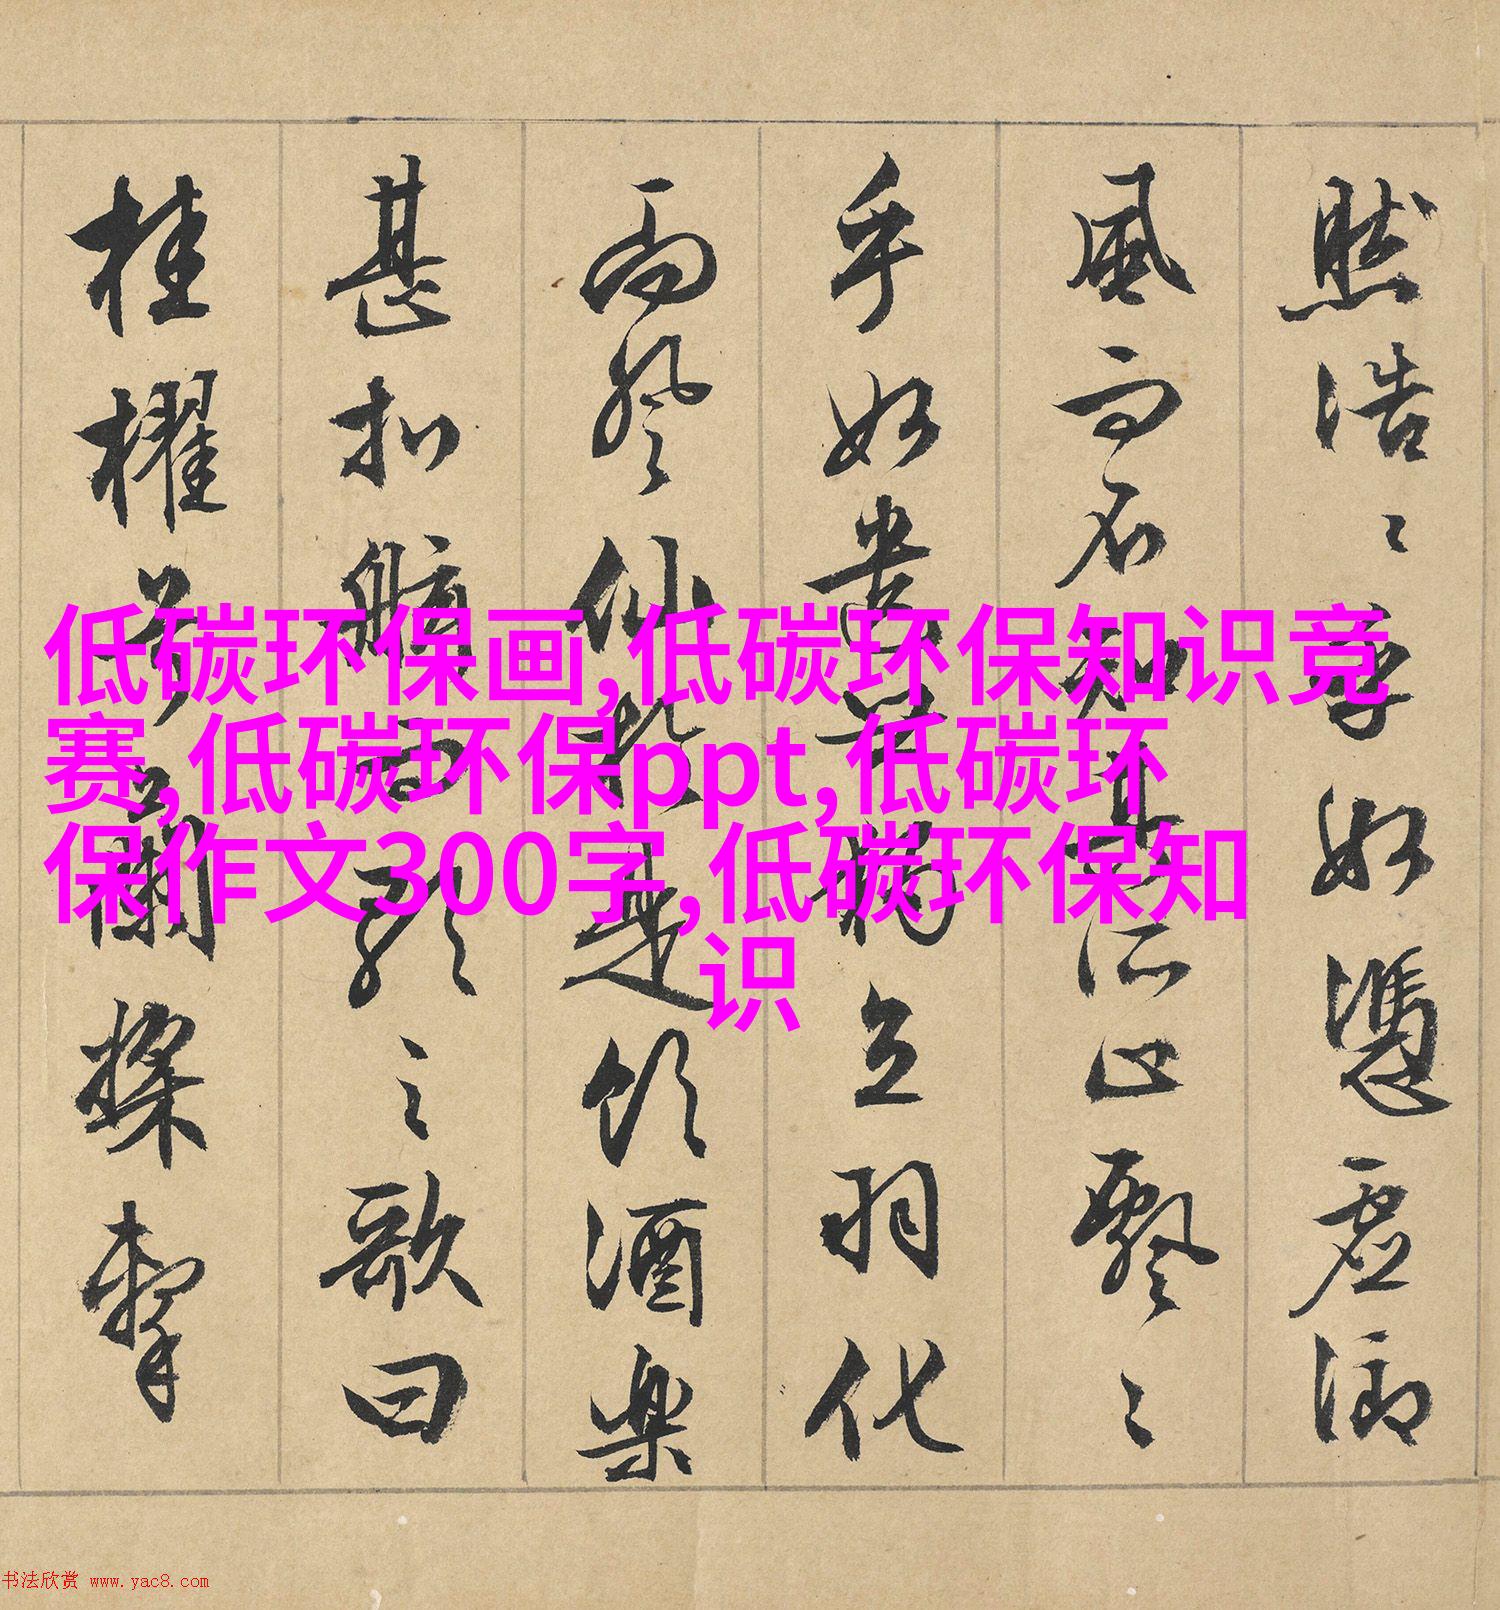 然浩〻乎如憑虛御
風而不知其所止飄〻
乎如遺世獨立羽化
而登仙於是飲酒樂
甚扣舷而歌之歌曰
桂櫂兮蘭槳擊
低碳环保画,低碳环保知识竞
赛,低碳环保ppt,低碳环
保作文300字,低碳环保知
识
书法欣赏 www.yac8.com